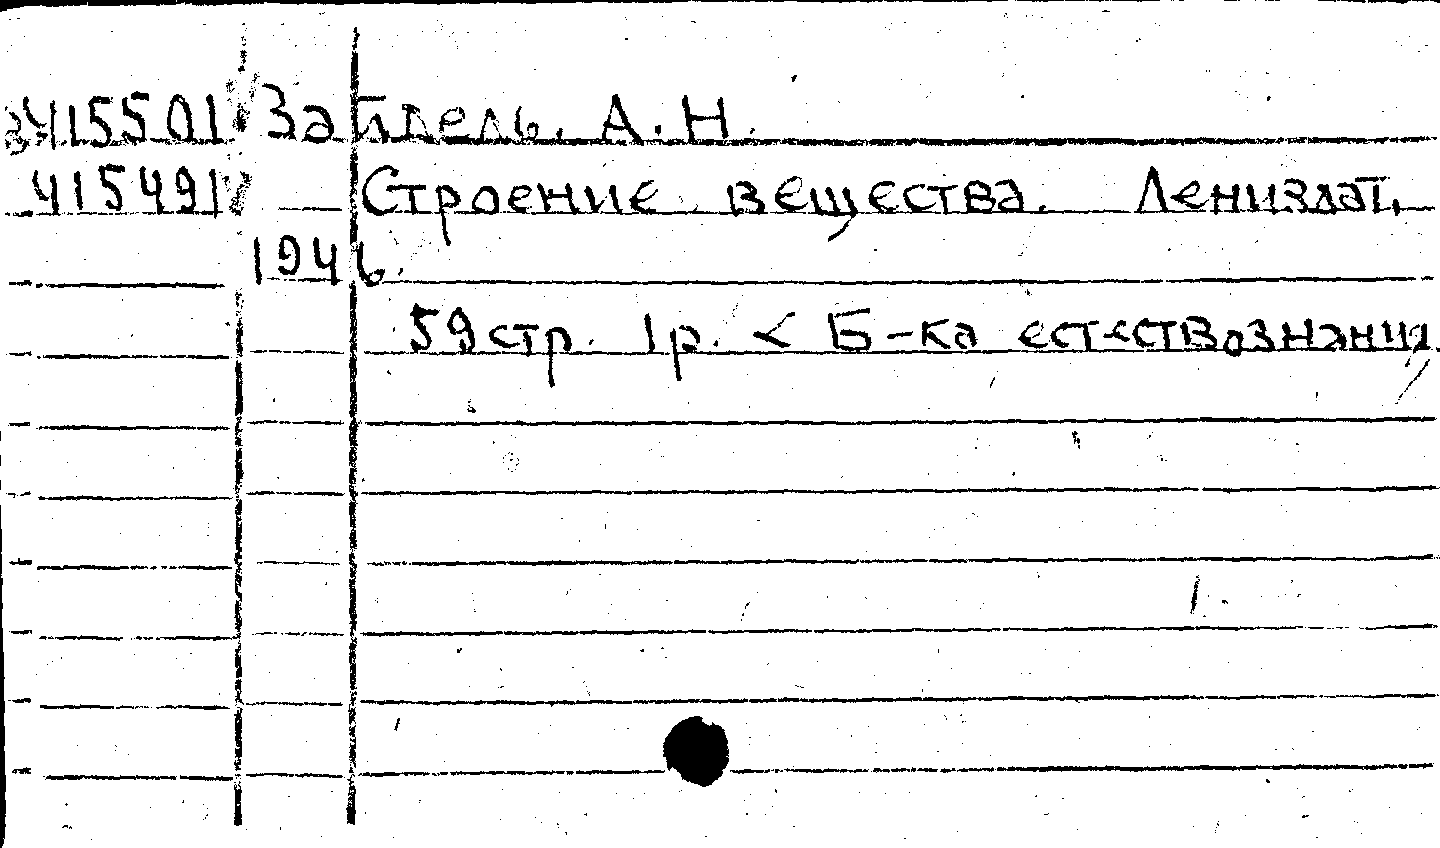 415501 Зайдель, А.Н.
415491 Строение вещества. Лениздат,
1946.
59 стр. 1 р. < Б-ка естествознания